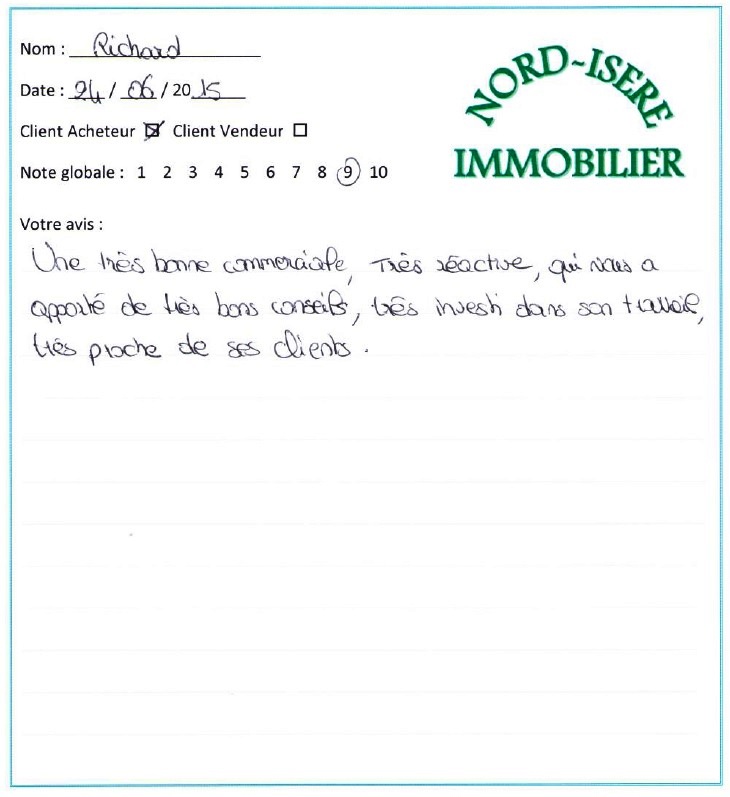 Nom : Richard
Date : 24 / 06 / 2015
Client Acheteur ☒ Client Vendeur ☐
Note globale : 1 2 3 4 5 6 7 8 9 10
NORD-ISERE
IMMOBILIER
Votre avis :
Une très bonne commerciale, très réactive, qui nous a
apporté de très bons conseils, très investi dans son travail,
très proche de ses clients.